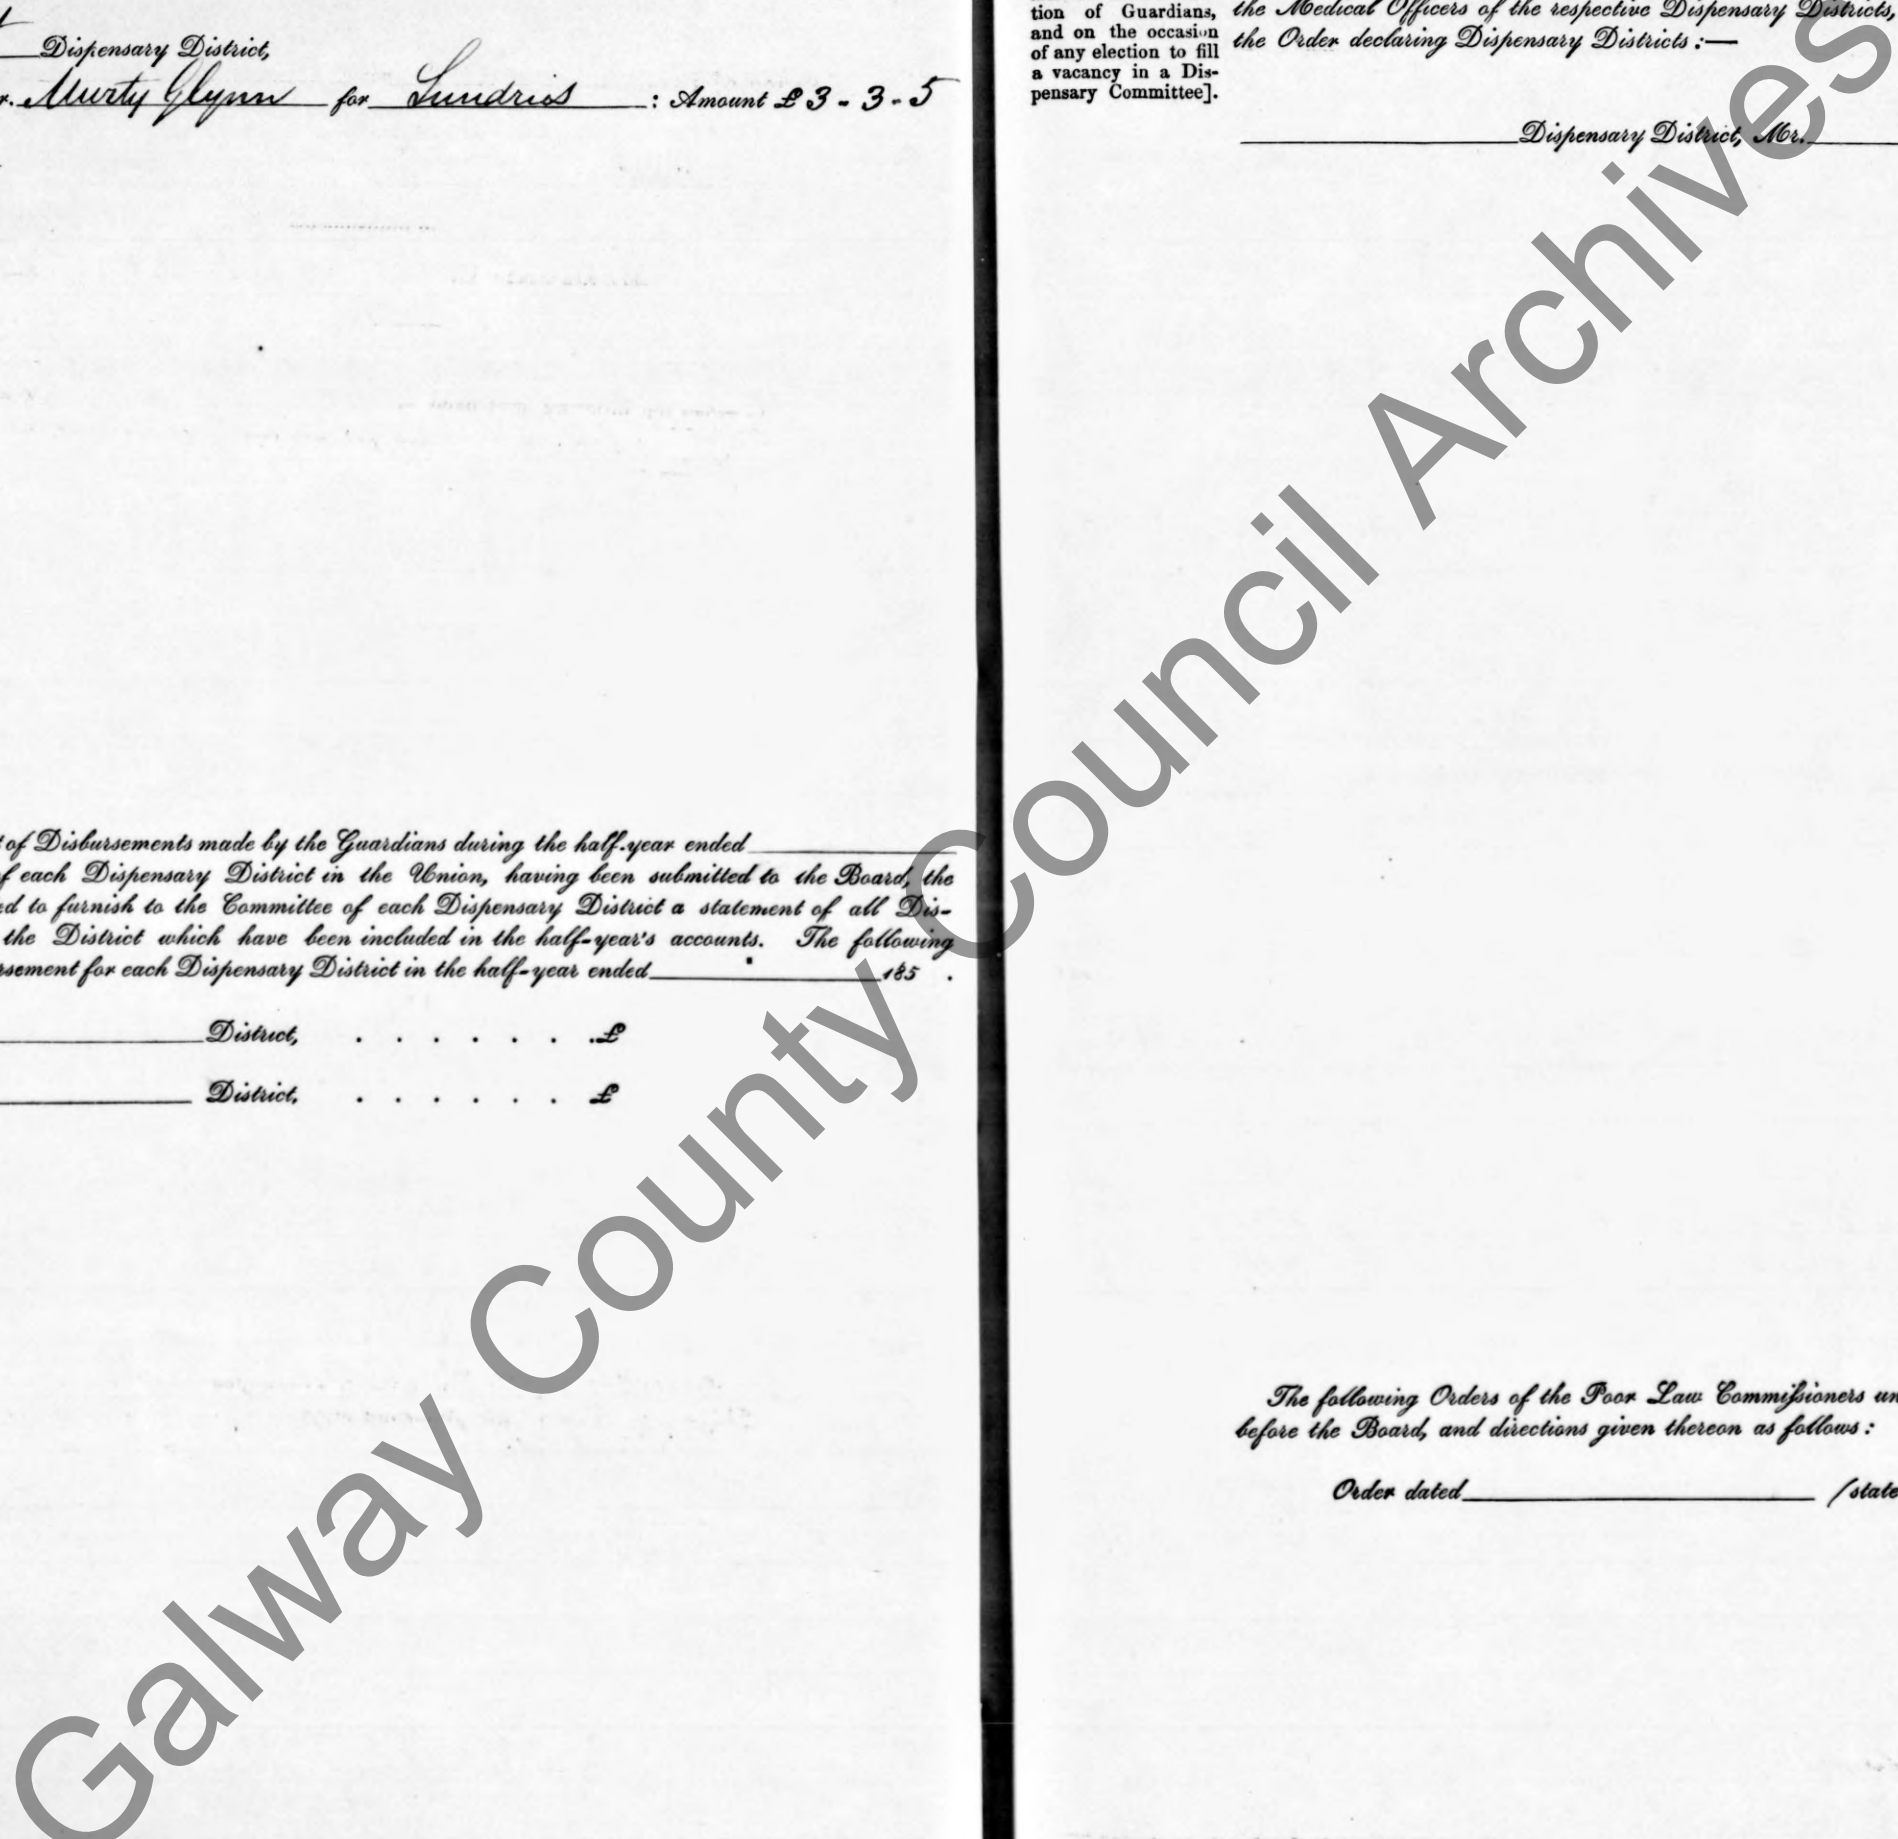 Dispensary District,
r. Murty Glynn for Sundries : Amount £3-3-5
t of Disbursements made by the Guardians during the half-year ended
f each Dispensary District in the Union, having been submitted to the Board, the
ed to furnish to the Committee of each Dispensary District a statement of all Dis-
the District which have been included in the half-year's accounts. The following
rsement for each Dispensary District in the half-year ended 185 .
District, . . . . . . .£
District, . . . . . . £
tion of Guardians,
and on the occasion
of any election to fill
a vacancy in a Dis-
pensary Committee].
the Medical Officers of the respective Dispensary Districts,
the Order declaring Dispensary Districts :—
Dispensary District, Mr.
The following Orders of the Poor Law Commissioners un
before the Board, and directions given thereon as follows :
Order dated (state
Galway County Council Archives